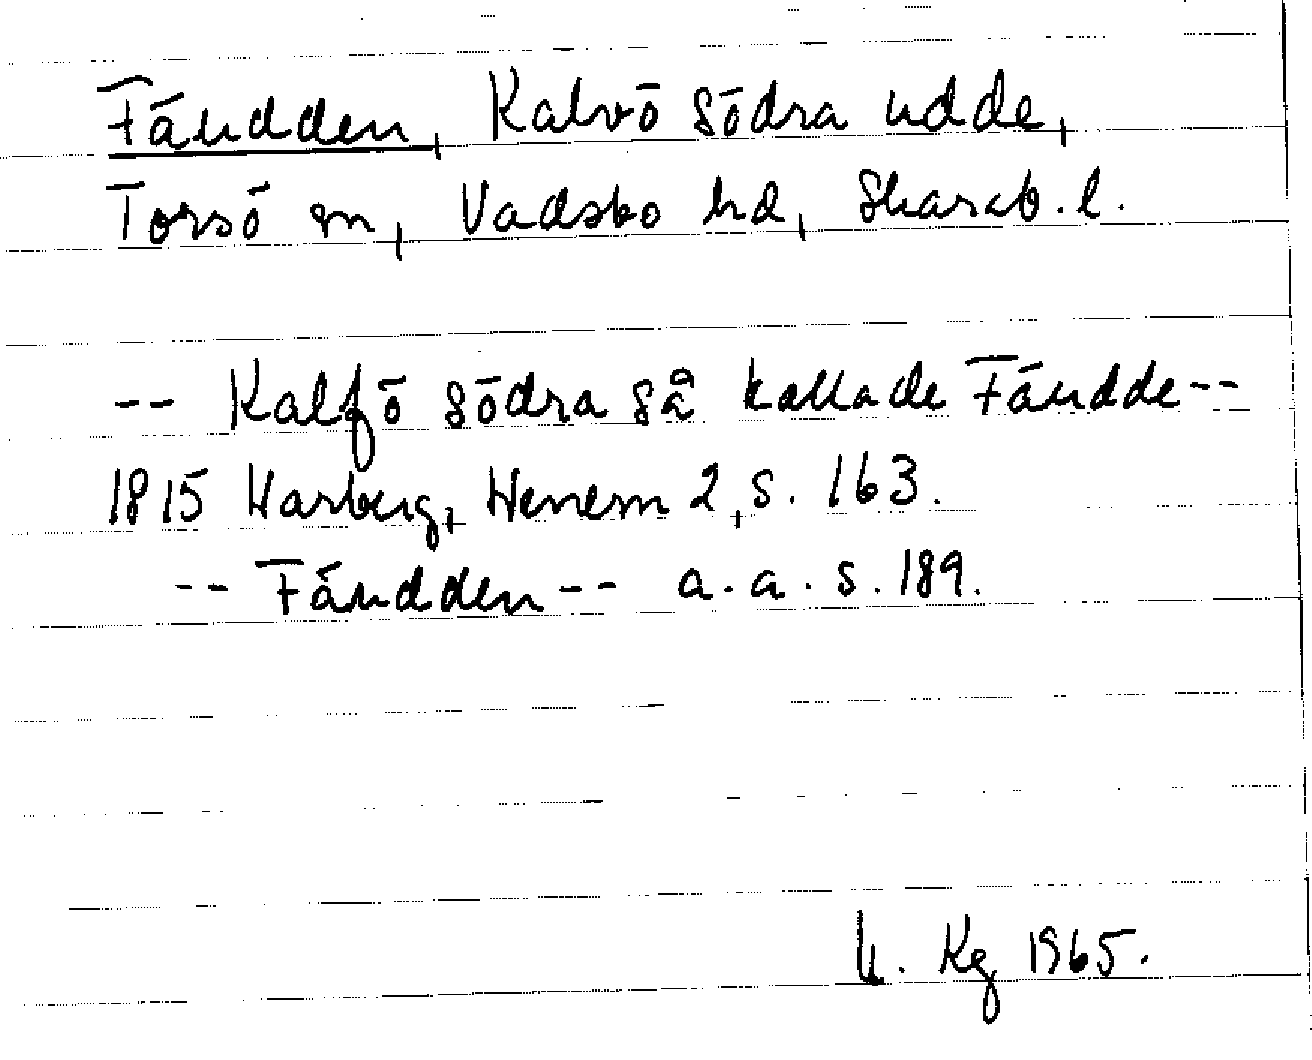 Fäudden, Kalvö södra udde,
Torsö sn, Vadsbo hd, Skarab. l.
-- Kalfö södra så kallade Fäudde --
1815 Warberg, Henem 2, s. 163.
-- Fäudden -- a. a. s. 189.
Kg 1965.